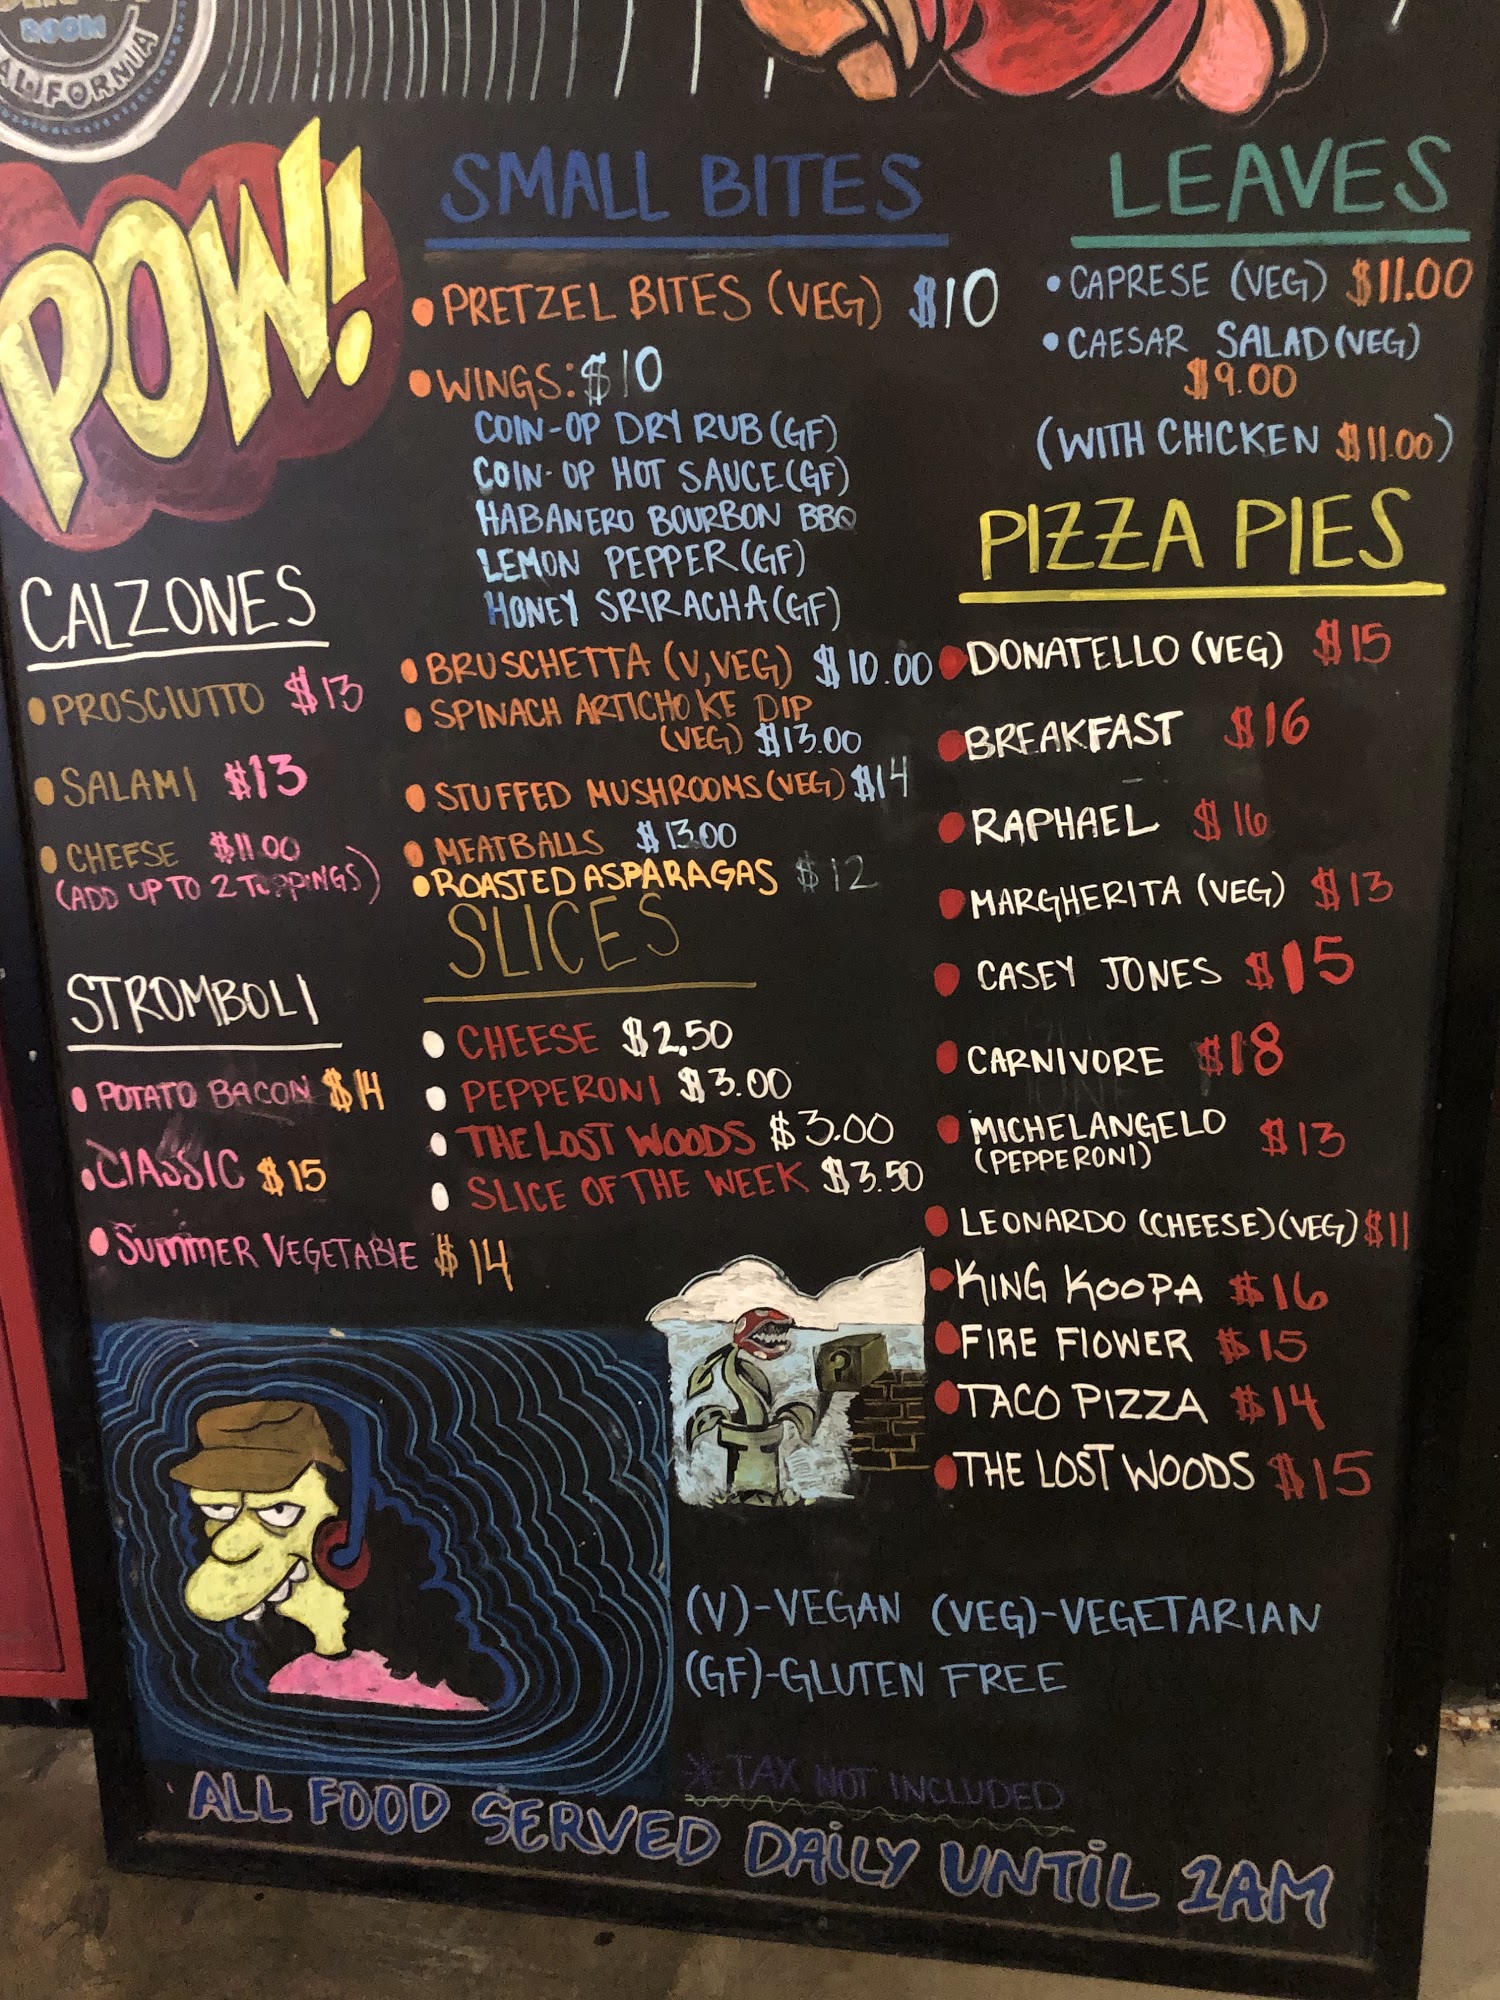 ROOM
CALIFORNIA
POW!
SMALL BITES
• PRETZEL BITES (VEG) $10
• WINGS: $10
COIN-OP DRY RUB (GF)
COIN-OP HOT SAUCE (GF)
HABANERO BOURBON BBQ
LEMON PEPPER (GF)
HONEY SRIRACHA (GF)
• BRUSCHETTA (V,VEG) $10.00
• SPINACH ARTICHOKE DIP
(VEG) $13.00
• STUFFED MUSHROOMS (VEG) $14
• MEATBALLS $13.00
• ROASTED ASPARAGAS $12
LEAVES
• CAPRESE (VEG) $11.00
• CAESAR SALAD (VEG)
$9.00
(WITH CHICKEN $11.00)
CALZONES
• PROSCIUTTO $13
• SALAMI $13
• CHEESE $11.00
(ADD UP TO 2 TOPPINGS)
STROMBOLI
• POTATO BACON $14
• CLASSIC $15
• SUMMER VEGETABLE $14
SLICES
• CHEESE $2.50
• PEPPERONI $3.00
• THE LOST WOODS $3.00
• SLICE OF THE WEEK $3.50
PIZZA PIES
• DONATELLO (VEG) $15
• BREAKFAST $16
• RAPHAEL $16
• MARGHERITA (VEG) $13
• CASEY JONES $15
• CARNIVORE $18
• MICHELANGELO $13
(PEPPERONI)
• LEONARDO (CHEESE) (VEG) $11
• KING KOOPA $16
• FIRE FLOWER $15
• TACO PIZZA $14
• THE LOST WOODS $15
?
(V)-VEGAN (VEG)-VEGETARIAN
(GF)-GLUTEN FREE
* TAX NOT INCLUDED
ALL FOOD SERVED DAILY UNTIL 1AM